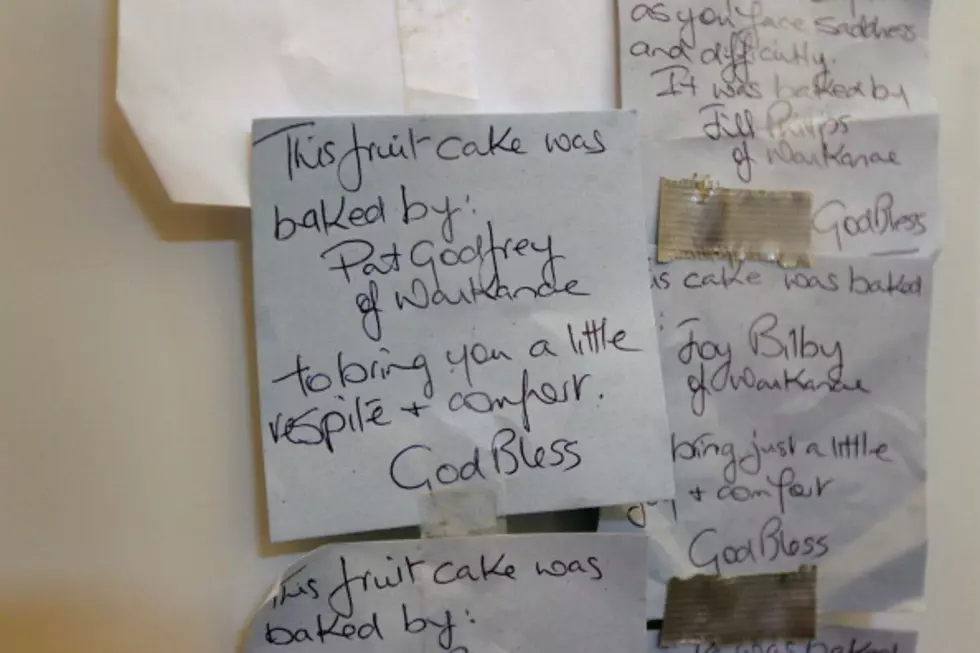 This fruit cake was
baked by:
Pat Godfrey
of Waikanae
to bring you a little
respite + comfort.
God Bless
This fruit cake was
baked by:
as you face sadness
and difficulty.
It was baked by
Jill Phillips
of Waikanae
God Bless
is cake was baked
Joy Bilby
of Waikanae
bring just a little
+ comfort
God Bless
was baked